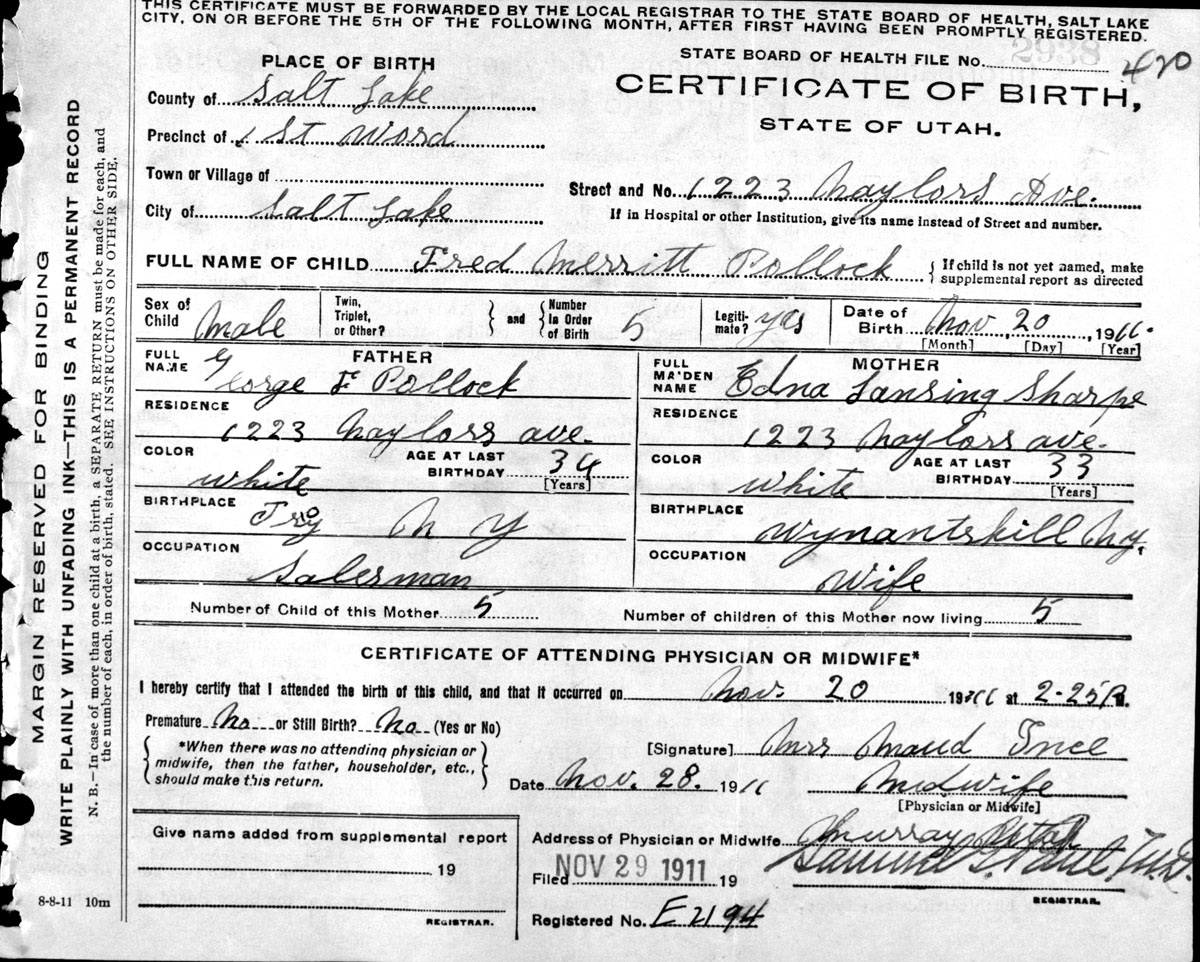 THIS CERTIFICATE MUST BE FORWARDED BY THE LOCAL REGISTRAR TO THE STATE BOARD OF HEALTH, SALT LAKE
CITY, ON OR BEFORE THE 5TH OF THE FOLLOWING MONTH, AFTER FIRST HAVING BEEN PROMPTLY REGISTERED.
2938
STATE BOARD OF HEALTH FILE No. 420
CERTIFICATE OF BIRTH,
STATE OF UTAH.
PLACE OF BIRTH
County of Salt Lake
Precinct of 1st Word
Town or Village of
City of Salt Lake
Street and No. 1223 Naylors Ave.
If in Hospital or other Institution, give its name instead of Street and number.
FULL NAME OF CHILD Fred Merritt Pollock { If child is not yet named, make
supplemental report as directed
Sex of Child Male
Twin, Triplet, or Other? } and { Number in Order of Birth 5
Legitimate? yes
Date of Birth Nov 20, 1911.
[Month] [Day] [Year]
FATHER
FULL NAME George F Pollock
RESIDENCE
1223 Naylors ave.
COLOR white
AGE AT LAST BIRTHDAY 34 [Years]
BIRTHPLACE
Troy N Y
OCCUPATION
Salesman
MOTHER
FULL MAIDEN NAME Edna Lansing Sharpe
RESIDENCE
1223 Naylors ave.
COLOR white
AGE AT LAST BIRTHDAY 33 [Years]
BIRTHPLACE
Wynantskill N.y.
OCCUPATION
Wife
Number of Child of this Mother 5
Number of children of this Mother now living 5
CERTIFICATE OF ATTENDING PHYSICIAN OR MIDWIFE*
I hereby certify that I attended the birth of this child, and that it occurred on Nov. 20 1911 at 2-25 P.M.
Premature No or Still Birth? No (Yes or No)
{ *When there was no attending physician or
midwife, then the father, householder, etc.,
should make this return. }
[Signature] Mrs Maud Ince
Date Nov. 28. 1911 Midwife
[Physician or Midwife]
Give name added from supplemental report
19
REGISTRAR.
Address of Physician or Midwife Murray Utah
Filed NOV 29 1911 19
Samuel G. Paul, M.D.
REGISTRAR.
Registered No. E2194
8-8-11 10m
MARGIN RESERVED FOR BINDING
WRITE PLAINLY WITH UNFADING INK—THIS IS A PERMANENT RECORD
N. B.—In case of more than one child at a birth, a SEPARATE RETURN must be made for each, and
the number of each, in order of birth, stated. SEE INSTRUCTIONS ON OTHER SIDE.